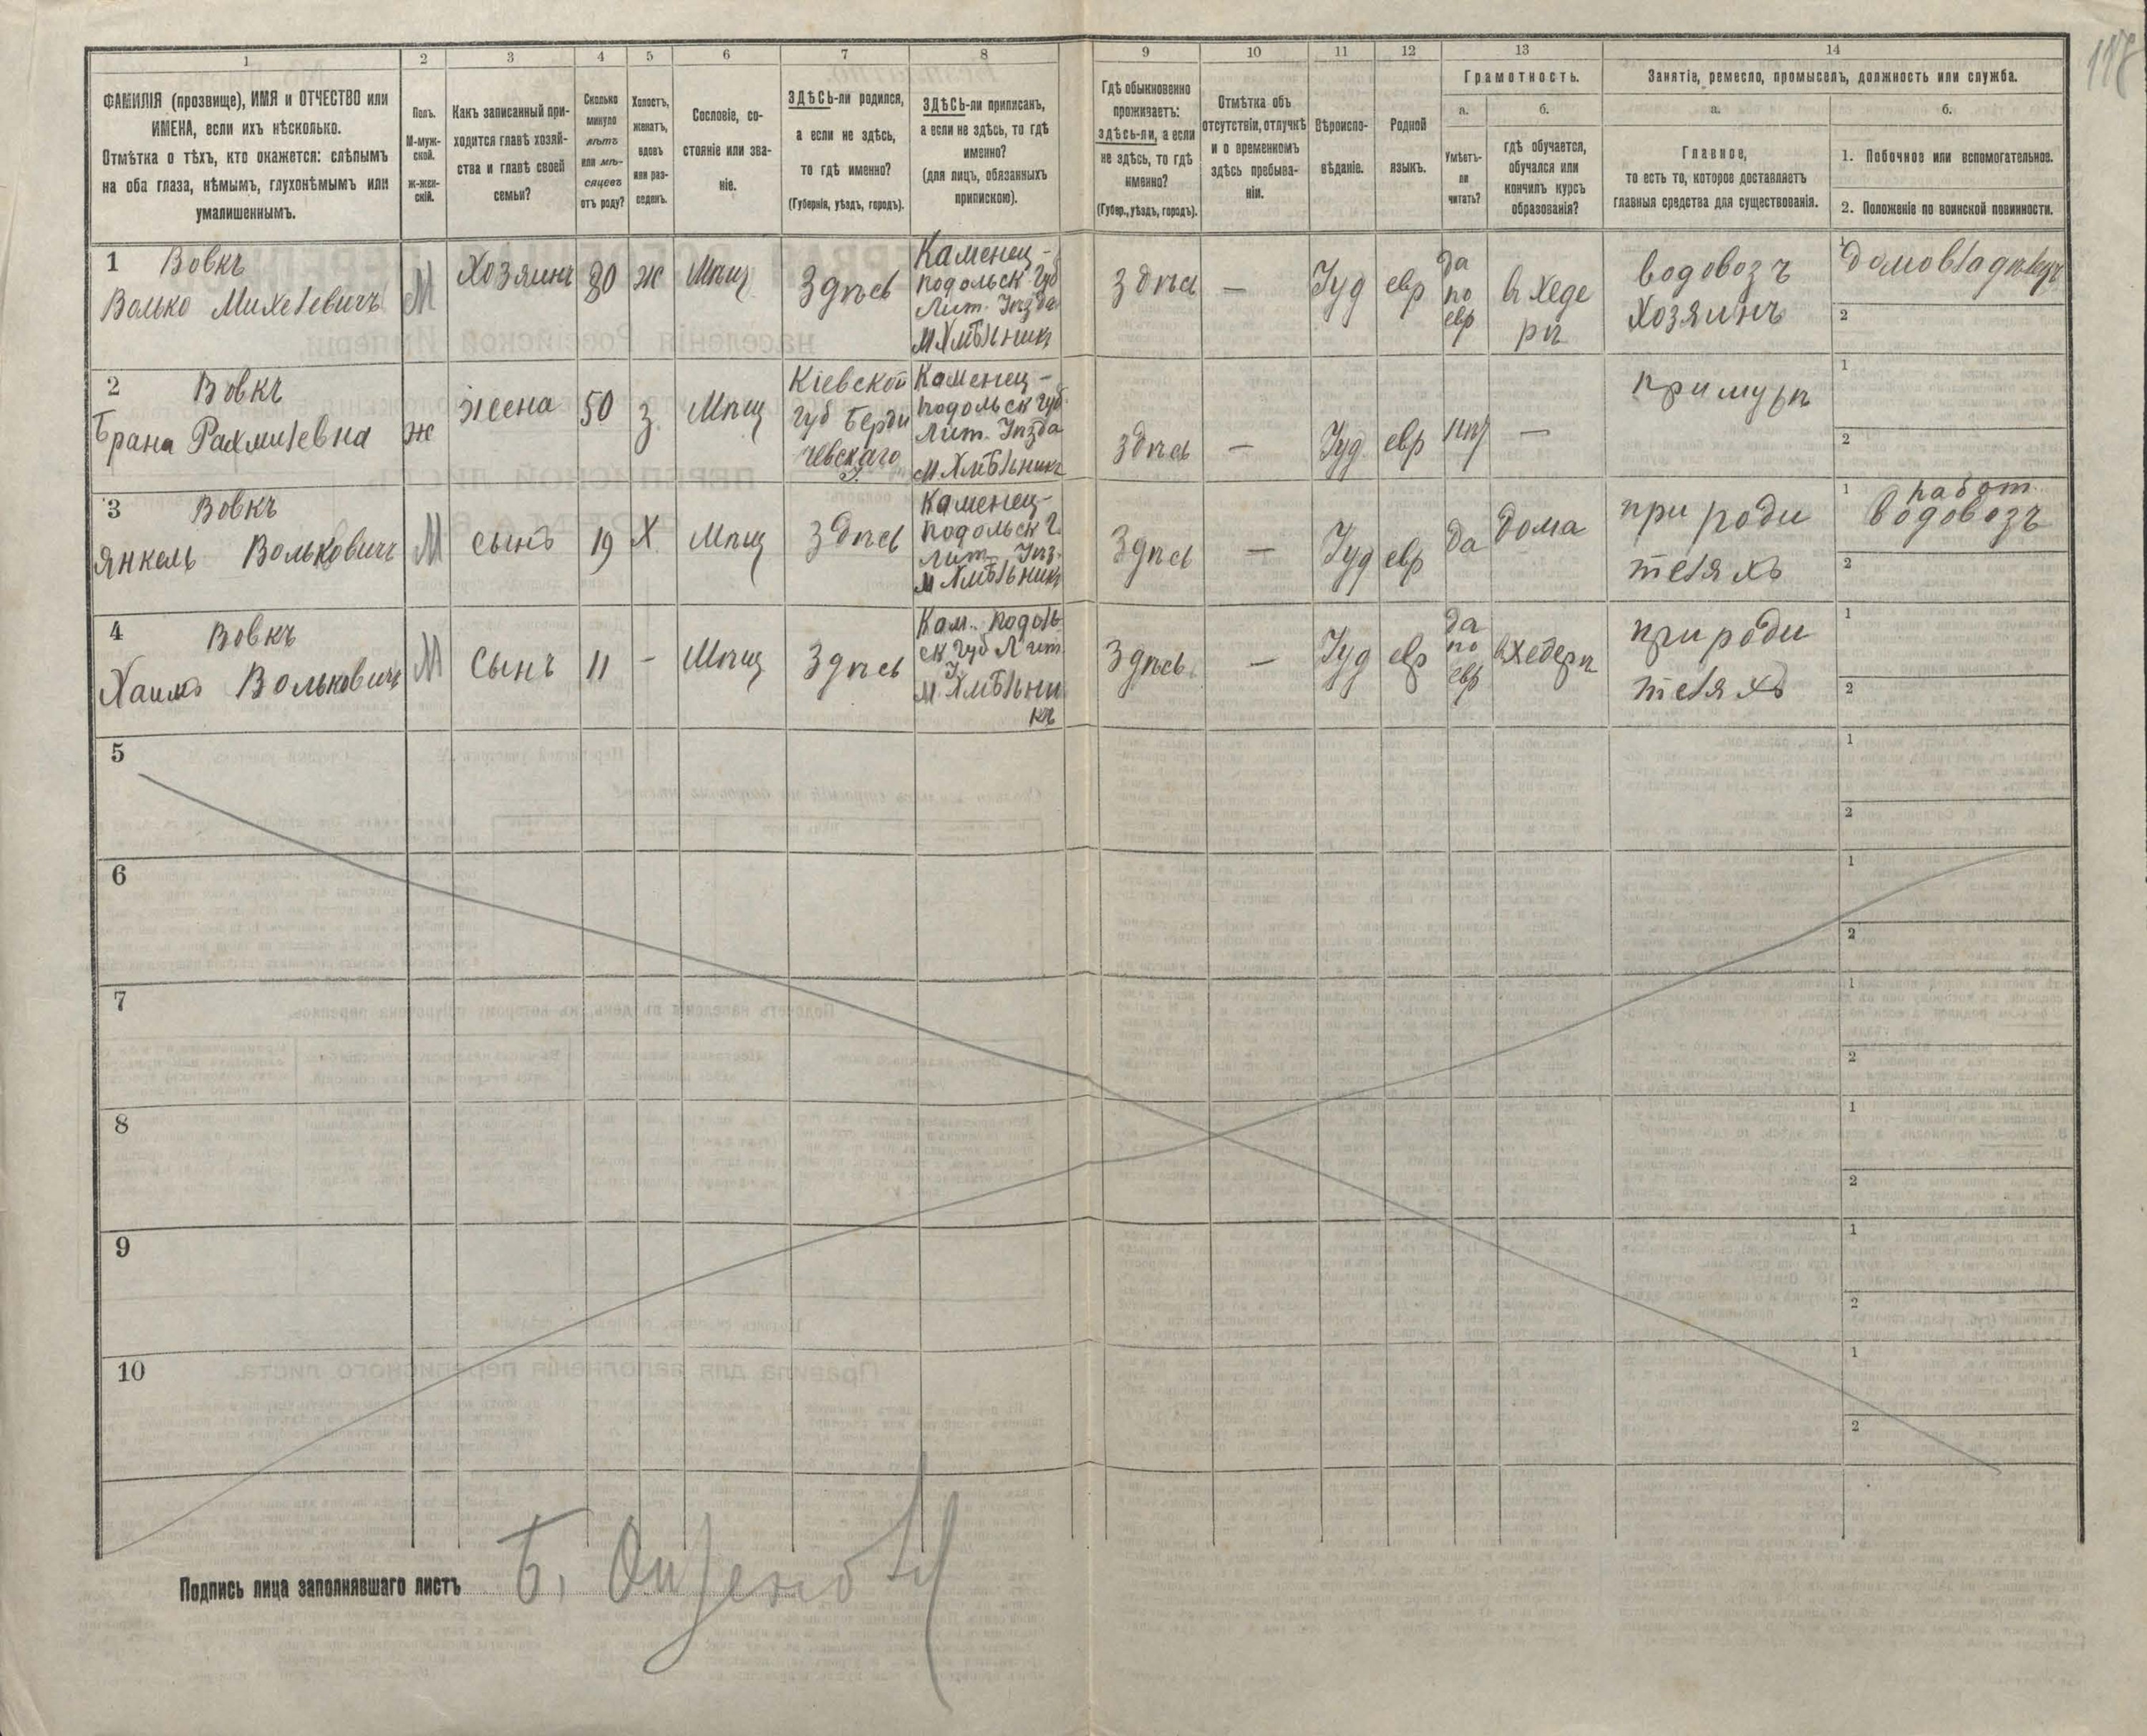 117
1
2
3
4
5
6
7
8
9
10
11
12
13
14
ФАМИЛІЯ (прозвище), ИМЯ и ОТЧЕСТВО или
ИМЕНА, если ихъ нѣсколько.
Отмѣтка о тѣхъ, кто окажется: слѣпымъ
на оба глаза, нѣмымъ, глухонѣмымъ или
умалишеннымъ.
Полъ.
М-муж-
ской.
Ж-жен-
скій.
Какъ записанный при-
ходится главѣ хозяй-
ства и главѣ своей
семьи?
Сколько
минуло
лѣтъ
или мѣ-
сяцевъ
отъ роду?
Холостъ,
женатъ,
вдовъ
или раз-
веденъ.
Сословіе, со-
стояніе или зва-
ніе.
ЗДѢСЬ-ли родился,
а если не здѣсь,
то гдѣ именно?
(Губернія, уѣздъ, городъ).
ЗДѢСЬ-ли приписанъ,
а если не здѣсь, то гдѣ
именно?
(для лицъ, обязанныхъ
припискою).
Гдѣ обыкновенно
проживаетъ:
здѣсь-ли, а если
не здѣсь, то гдѣ
именно?
(Губер., уѣздъ, городъ).
Отмѣтка объ
отсутствіи, отлучкѣ
и о временномъ
здѣсь пребыва-
ніи.
Вѣроиспо-
вѣданіе.
Родной
языкъ.
Грамотность.
а.
Умѣетъ-
ли
читать?
б.
гдѣ обучается,
обучался или
кончилъ курсъ
образованія?
Занятіе, ремесло, промыселъ, должность или служба.
а.
Главное,
то есть то, которое доставляетъ
главныя средства для существованія.
б.
1. Побочное или вспомогательное.
2. Положеніе по воинской повинности.
1
Вовкъ
Волько Михелевичъ
М
Хозяинъ
80
ж
Мѣщ
Здѣсь
Каменец-
подольск Губ
Лит. Уѣзда
м Хмѣльник
Здѣсь
—
Іуд
евр
да
по
евр
в хеде
рѣ
водовозъ
Хозяинъ
1
домовладѣлец
2
2
Вовкъ
Брана Рахмилевна
ж
жена
50
з.
Мѣщ
Кіевской
губ Берди
чевскаго
у.
Каменец-
подольск губ.
Лит. Уѣзда
м Хмѣльникъ
здѣсь
—
Іуд.
евр
нѣт
—
при мужѣ
1
2
3
Вовкъ
Янкель Вольковичъ
М
сынъ
19
Х.
Мѣщ
Здѣсь
Каменец-
подольск г.
Лит. Уѣз.
м Хмѣльникъ
Здѣсь
—
Іуд
евр
да
дома
при роди
теляхъ
1
работ.
водовозъ
2
4
Вовкъ
Хаимъ Вольковичъ
М
Сынъ
11
-
Мѣщ
Здѣсь
Кам. Подоль
ск губ Лит
у.
м Хмѣльни
къ
Здѣсь
—
Іуд
евр
да
по
евр
в хедерѣ
при роди
теляхъ
1
2
5
1
2
6
1
2
7
1
2
8
1
2
9
1
2
10
1
2
Подпись лица заполнявшаго листъ
Б.